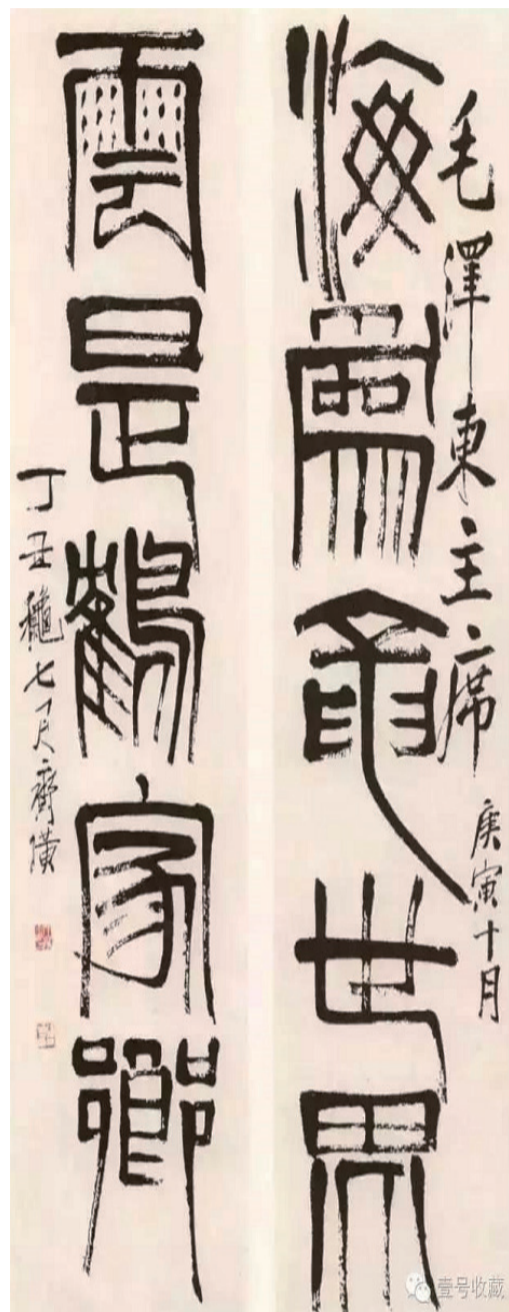 毛澤東主席
庚寅十月
海爲龍世界
雲是鶴家鄉
丁丑穐七月齊璜
壹号收藏